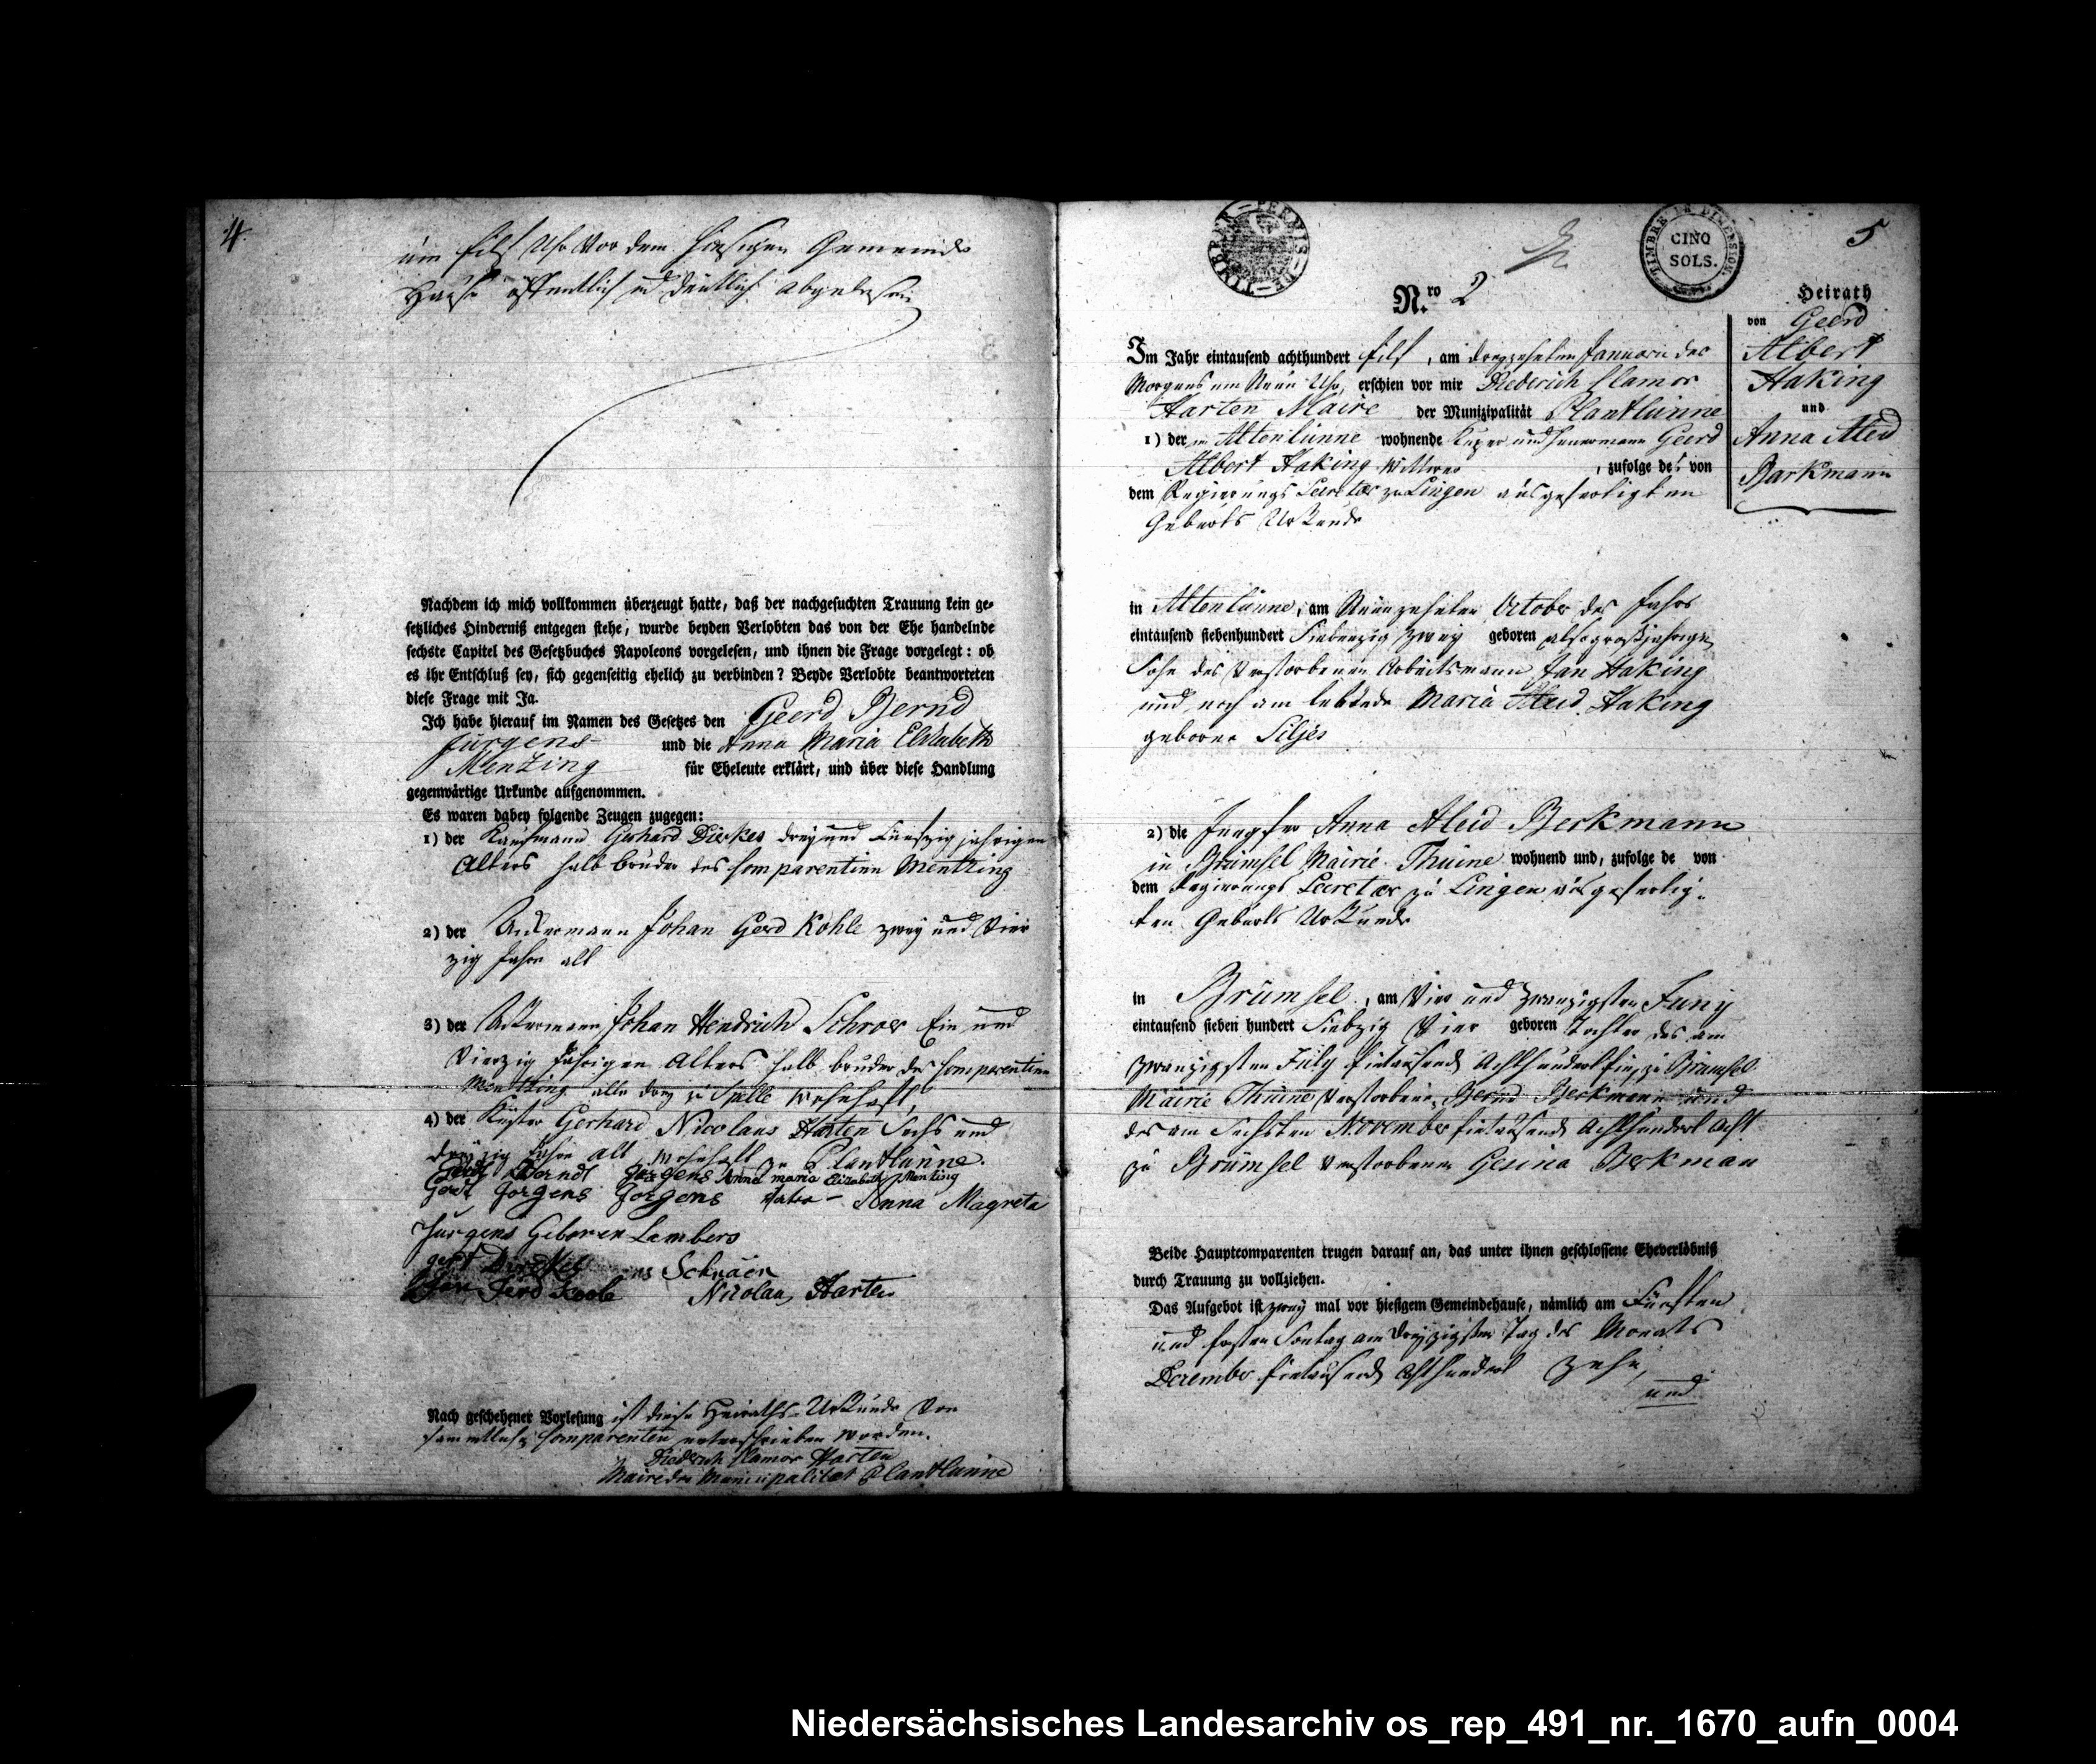 4.
um Eilf Uhr vor dem hiesigen Gemeinde
Hause öffentlich und deutlich abgelesen
Nachdem ich mich vollkommen überzeugt hatte, daß der nachgesuchten Trauung kein ge-
setzliches Hinderniß entgegen stehe, wurde beyden Verlobten das von der Ehe handelnde
sechste Capitel des Gesetzbuches Napoleons vorgelesen, und ihnen die Frage vorgelegt: ob
es ihr Entschluß sey, sich gegenseitig ehelich zu verbinden? Beyde Verlobte beantworteten
diese Frage mit Ja.
Ich habe hierauf im Namen des Gesetzes den Geerd Bernd
Jürgens und die Anna Maria Elisabeth
Mentzing für Eheleute erklärt, und über diese Handlung
gegenwärtige Urkunde aufgenommen.
Es waren dabey folgende Zeugen zugegen:
1) der Kaufmann Gerhard Dierkes drey und Funfzig jahrigen
Alters halb bruder des Comparentinn Mentzing
2) der Ackermann Johan Gerd Kohle zwey und Vier
zig Jahre alt
3) der Ackermann Johan Hendrich Schroer Ein und
Vierzig Jahrigen Alters halb bruder der Comparentinn
Mentzing alle drey zu Spelle wohnhaft,
4) der Küster Gerhard Nicolaus Harten Sechs und
dreyzig Jahre alt, wohnhaft zu Plantlünne.
Gerdt Berndt Jorgens Anna maria Elizabeth Menting
Gerdt Jorgens Jorgens Vater - Anna Magreta
Jurgens Geboren Lambers
gert Dirckes Schräer
Jan Gerd Koole Nicolaus Harten
Nach geschehener Vorlesung ist diese Heiraths-Urkunde von
sammtlichen Comparenten unterschrieben worden.
Diederich Clamor Harten
Maire der Municipalitat Plantlünne
5
TIMBRE DE DIMENSION.
CINQ
SOLS.
N.ro 2
Heirath
von Geerd
Albert
Haking
und
Anna Aleid
Barkmann
Im Jahr eintausend achthundert Eilf, am dreyzehnten Januarii des
Morgens um Neun Uhr, erschien vor mir Diederich Clamor
Harten Maire der Munizipalität Plantlünne
1) der in Altenlünne wohnende und Heuermann Geerd
Albert Haking Wittwer, zufolge der von
dem Regierungs Secretär zu Lingen ausgefertigten
Geburts Urkunde
in Altenlünne, am Neunzehnten October des Jahrs
eintausend siebenhundert Siebenzig zwey geboren also großjahriger
Sohn des Verstorbenen Arbeitsmann Jan Haking
und noch am lebende Maria Aleid Haking
geborne Siljes
2) die Jungfer Anna Aleid Berkmann
in Brümsel Mairie Thuine wohnend und, zufolge de von
dem Regierungs Secretär zu Lingen ausgefertig-
ten Geburts Urkunde
in Brümsel, am Vier und Zwanzigsten Juny
eintausend sieben hundert Siebzig Vier geboren Tochter des am
zwanzigsten July Eintausend Achthundert zu Brümsel
Mairie Thuine Verstorbenen Bernd Berkmann und
der am Sechsten November Eintausend Achthundert Acht
zu Brümsel Verstorbenen Gesina Berkman
Beide Hauptcomparenten trugen darauf an, das unter ihnen geschlossene Eheverlöbniß
durch Trauung zu vollziehen.
Das Aufgebot ist zwey mal vor hiesigem Gemeindehause, nämlich am Fünften
und Ersten Sontag am dreyzigsten Tag des Monats
December Eintausend Achthundert Zehn,
und
Niedersächsisches Landesarchiv os_rep_491_nr._1670_aufn_0004